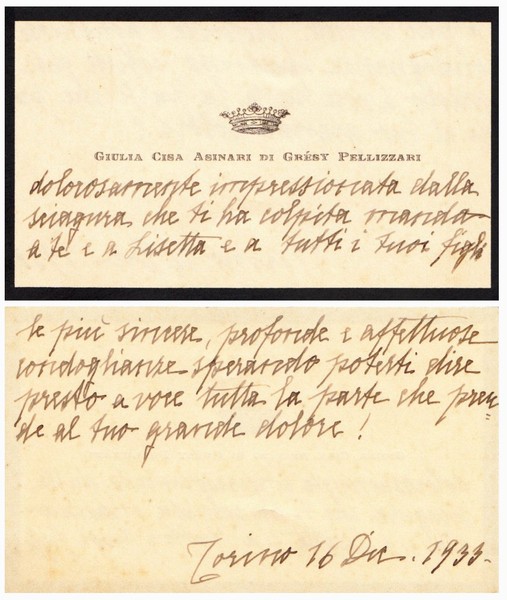 GIULIA CISA ASINARI DI GRÉSY PELLIZZARI
dolorosamente impressionata dalla
sciagura che ti ha colpita manda
a te e a Lisetta e a tutti i tuoi figli
le più sincere, profonde e affettuose
condoglianze sperando poterti dire
presto a voce tutta la parte che pren=
de al tuo grande dolore!
Torino 16 Dic. 1933.